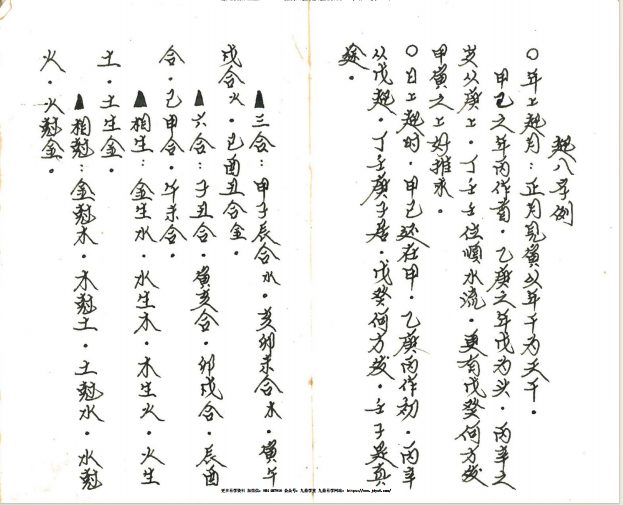 起八字例
○年上起月：正月見寅以年干为天干．
甲己之年丙作首．乙庚之年戊为头．丙辛之
岁从庚上．丁壬壬位順水流．更有戊癸何方发
甲寅之上好推求．
○日上起时．甲己还在甲．乙庚丙作初．丙辛
从戊起．丁壬庚子居．戊癸何方发．壬子是真
途．
▲三合：甲子辰合水．亥卯未合木．寅午
戌合火．巳酉丑合金．
▲六合：子丑合．寅亥合．卯戌合．辰酉
合．巳申合．午未合．
▲相生：金生水．水生木．木生火．火生
土．土生金．
▲相尅：金尅木．木尅土．土尅水．水尅
火．火尅金．